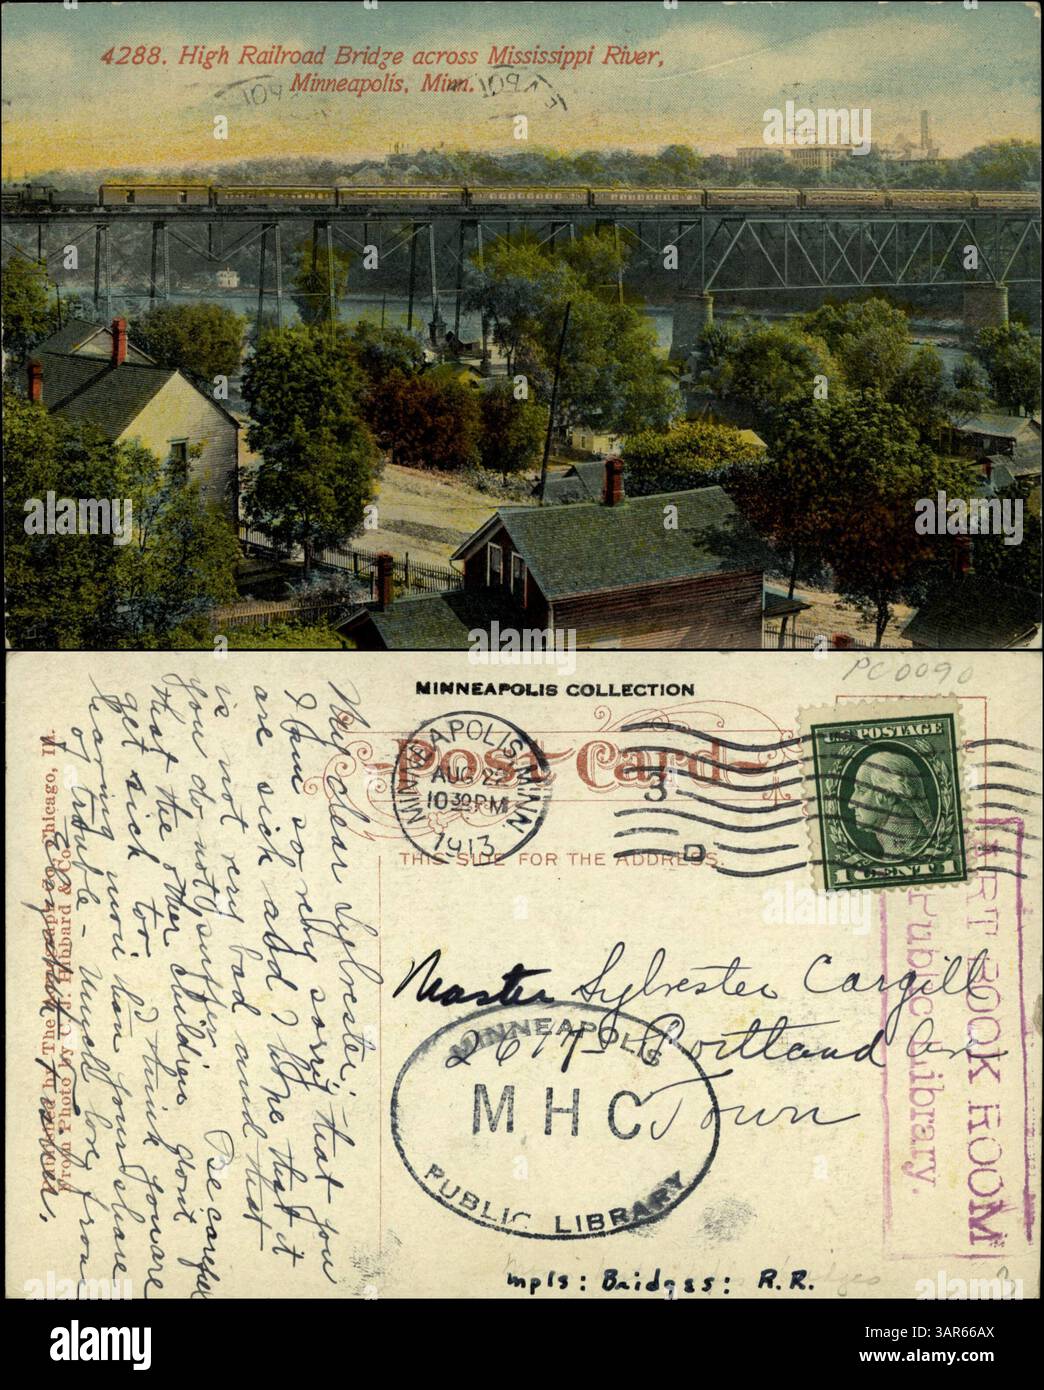 4288. High Railroad Bridge across Mississippi River,
Minneapolis, Minn.
PC0090
MINNEAPOLIS COLLECTION
Post Card
THIS SIDE FOR THE ADDRESS.
MINNEAPOLIS, MINN.
AUG 22
10 30 PM
1913
3
D
U.S. POSTAGE
1 CENT 1
My dear Sylvester:-
I am so very sorry that you
are sick and I hope that it
is not very bad and that
you do not suffer. Be careful
that the other children don't
get sick too. I'd think you are
having more than your share
of trouble - Much love from
Master Sylvester Cargill
2617 Portland Av
Town
MINNEAPOLIS
MHC
PUBLIC LIBRARY
ART BOOK ROOM
Public Library.
From Photo by C. J. Hibbard & Co.
Chicago, Ill.
Mpls: Bridges: R.R.
alamy
Image ID: 3AR66AX
www.alamy.com